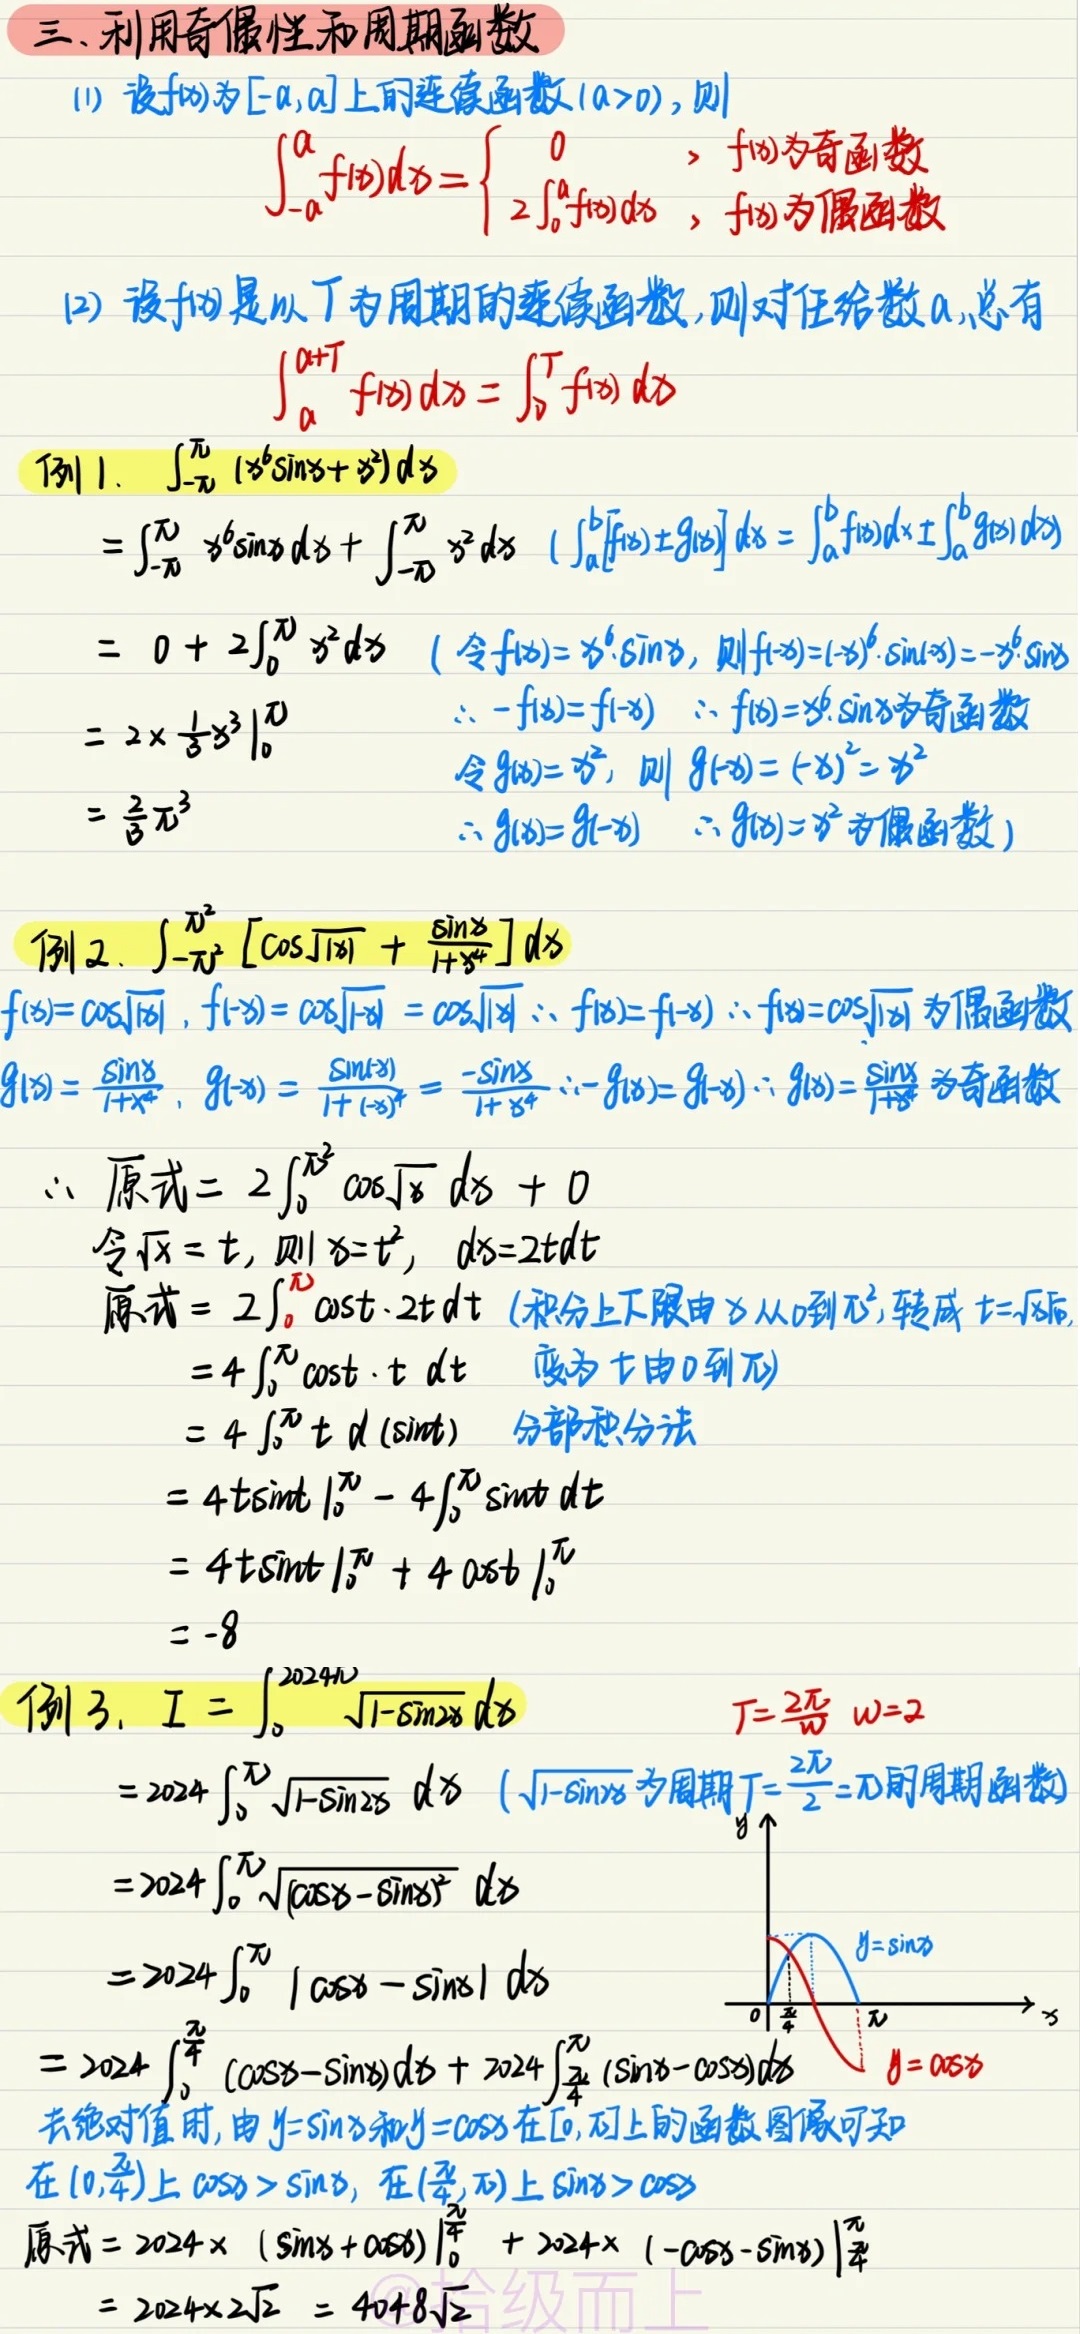 三、利用奇偶性和周期函数
(1) 设f(x)为[-a,a]上的连续函数(a>0),则
∫_{-a}^{a} f(x)dx = { 0 , f(x)为奇函数
2∫_0^a f(x)dx , f(x)为偶函数
(2) 设f(x)是以T为周期的连续函数,则对任给数a,总有
∫_a^{a+T} f(x)dx = ∫_0^T f(x)dx
例1. ∫_{-π}^{π} (x^6 sinx + x^2)dx
= ∫_{-π}^{π} x^6 sinx dx + ∫_{-π}^{π} x^2 dx (∫_a^b [f(x)±g(x)]dx = ∫_a^b f(x)dx ± ∫_a^b g(x)dx)
= 0 + 2∫_0^π x^2 dx (令f(x)=x^6·sinx, 则f(-x)=(-x)^6·sin(-x)=-x^6·sinx
∴ -f(x)=f(-x) ∴ f(x)=x^6·sinx为奇函数
= 2×\frac{1}{3}x^3|_0^π
令g(x)=x^2, 则 g(-x)=(-x)^2=x^2
= \frac{2}{3}π^3
∴ g(x)=g(-x) ∴ g(x)=x^2为偶函数)
例2. ∫_{-π^2}^{π^2} [cos√|x| + \frac{sinx}{1+x^4}]dx
f(x)=cos√|x|, f(-x)=cos√|-x| = cos√|x| ∴ f(x)=f(-x) ∴ f(x)=cos√|x| 为偶函数
g(x)=\frac{sinx}{1+x^4}, g(-x)=\frac{sin(-x)}{1+(-x)^4} = \frac{-sinx}{1+x^4} ∴ -g(x)=g(-x) ∴ g(x)=\frac{sinx}{1+x^4}为奇函数
∴ 原式 = 2∫_0^{π^2} cos√x dx + 0
令√x = t, 则x=t^2, dx=2tdt
原式 = 2∫_0^π cost·2tdt (积分上下限由x从0到π^2,转成t=√x后,
= 4∫_0^π cost·t dt 变为t由0到π)
= 4∫_0^π t d(sint) 分部积分法
= 4tsint|_0^π - 4∫_0^π sint dt
= 4tsint|_0^π + 4cost|_0^π
= -8
例3. I = ∫_0^{2024π} √(1-sin2x) dx T=\frac{2π}{w} w=2
= 2024∫_0^π √(1-sin2x) dx (√(1-sin2x)为周期T=\frac{2π}{2}=π的周期函数)
= 2024∫_0^π √((cosx-sinx)^2) dx
= 2024∫_0^π |cosx-sinx| dx
y
y=sinx
0 \frac{π}{4} π x
y=cosx
= 2024∫_0^{\frac{π}{4}} (cosx-sinx)dx + 2024∫_{\frac{π}{4}}^π (sinx-cosx)dx
去绝对值时,由y=sinx和y=cosx在[0,π]上的函数图像可知
在(0,\frac{π}{4})上 cosx>sinx, 在(\frac{π}{4},π)上 sinx>cosx
原式 = 2024×(sinx+cosx)|_0^{\frac{π}{4}} + 2024×(-cosx-sinx)|_{\frac{π}{4}}^π
= 2024×2√2 = 4048√2
@拾级而上